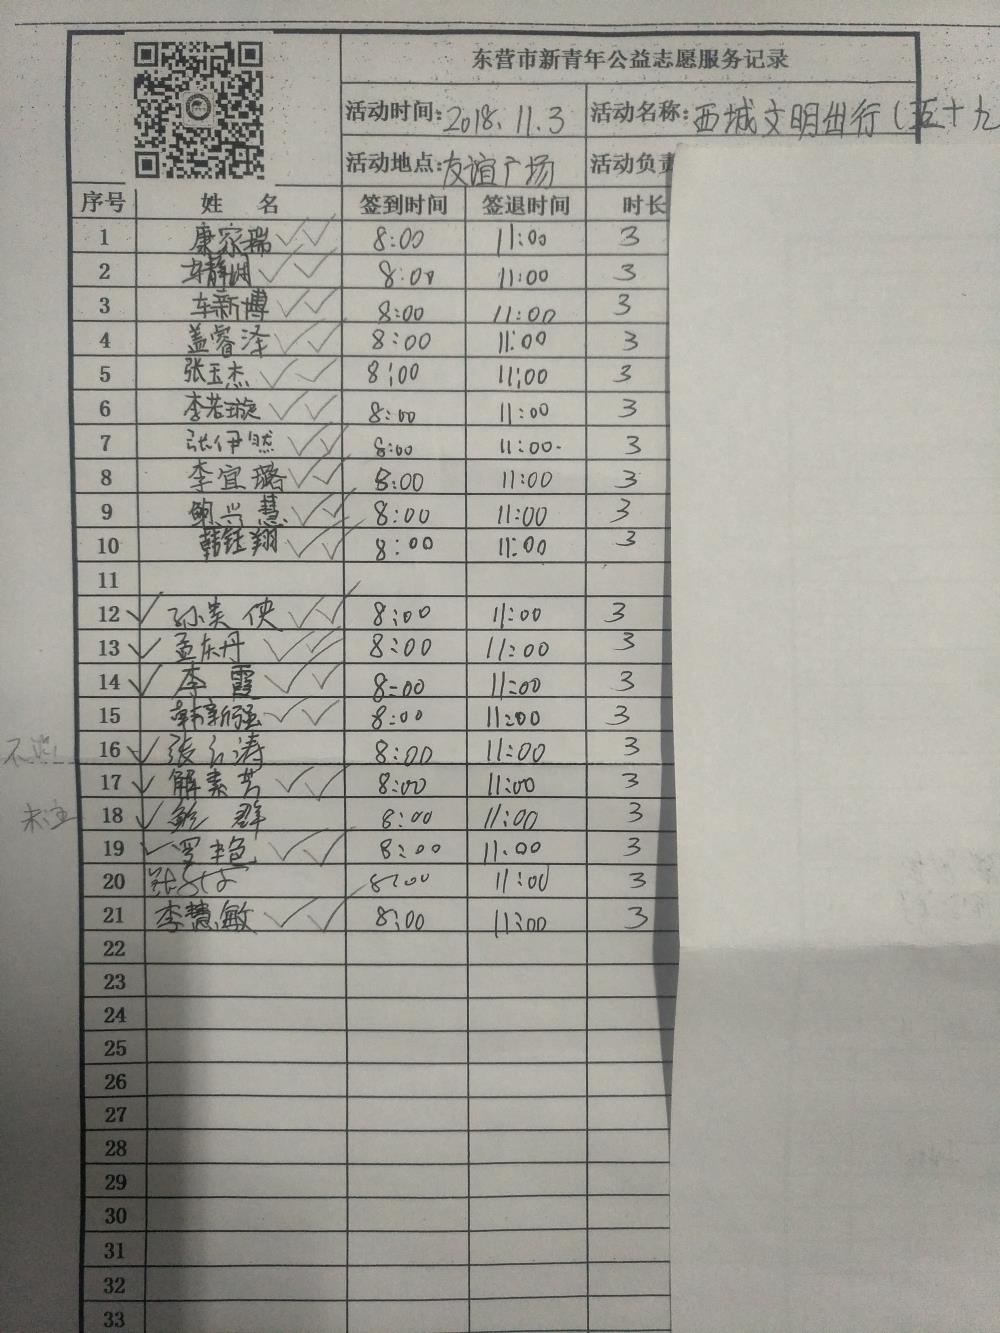 东营市新青年公益志愿服务记录
活动时间: 2018.11.3 活动名称: 西城文明出行(五十九
活动地点: 友谊广场 活动负责
序号 姓 名 签到时间 签退时间 时长
1 康家瑞 8:00 11:00 3
2 8:00 11:00 3
3 车新博 8:00 11:00 3
4 盖睿泽 8:00 11:00 3
5 张玉杰 8:00 11:00 3
6 李若璇 8:00 11:00 3
7 张伊然 8:00 11:00 3
8 李宜璐 8:00 11:00 3
9 鲍兴慧 8:00 11:00 3
10 韩钰翔 8:00 11:00 3
11
12 孙美侠 8:00 11:00 3
13 孟庆丹 8:00 11:00 3
14 李霞 8:00 11:00 3
15 韩新强 8:00 11:00 3
16 8:00 11:00 3
17 解素芳 8:00 11:00 3
18 鲍群 8:00 11:00 3
19 罗丰色 8:00 11:00 3
20 8:00 11:00 3
21 李慧敏 8:00 11:00 3
22
23
24
25
26
27
28
29
30
31
32
33